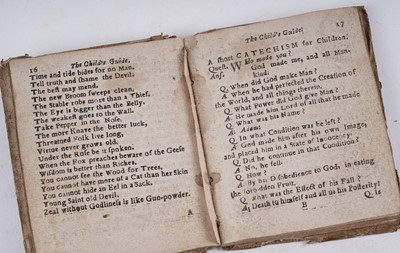 16 The Child's Guide.
Time and tide bides for no Man.
Tell truth and shame the Devil.
The best may mend.
The new Broom sweeps clean.
The Stable robs more than a Thief,
The Eye is bigger than the Belly.
The weakest goes to the Wall.
Take Pepper in the Nose.
The more Knave the better luck,
Threatned Folk live long,
Virtue never grows old.
Under the Rose be it spoken.
When the Fox preaches beware of the Geese
Wisdom is better than Riches.
You cannot see the Wood for Trees,
You cannot have more of a Cat than her Skin
You cannot hide an Eel in a Sack.
Young Saint old Devil.
Zeal without Godliness is like Gun-powder.
A
The Child's Guide; 17
A short CATECHISM for Children;
Quest. WHo made you?
Ans. God made me, and all Man-
kind;
Q. When did God make Man?
A. When he had perfected the Creation of
the World, and all things therein.
Q. What Power did God give Man?
A. He made him Lord of all that he made
Q. What was his Name?
A. Adam
Q. In what Condition was he left?
A. God made him after his own Image,
and placed him in a State of Innocency.
Q. Did he continue in that Condition?
A. No, he fell.
Q. How?
A. By his Disobedience to God; in eating
the forbidden Fruit.
Q. What was the Effect of his Fall?
A. Death to himself and all us his Posterity!
B Q. Is